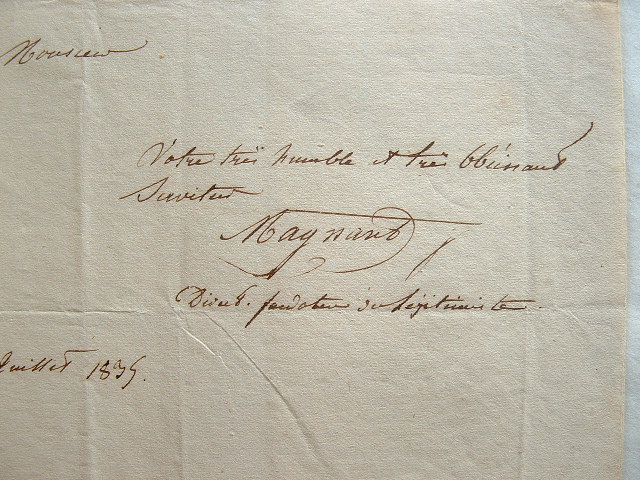 Monsieur
Votre très humble et très obéissant
Serviteur
Magnant
Direct. fondateur du Légitimiste.
Juillet 1835.